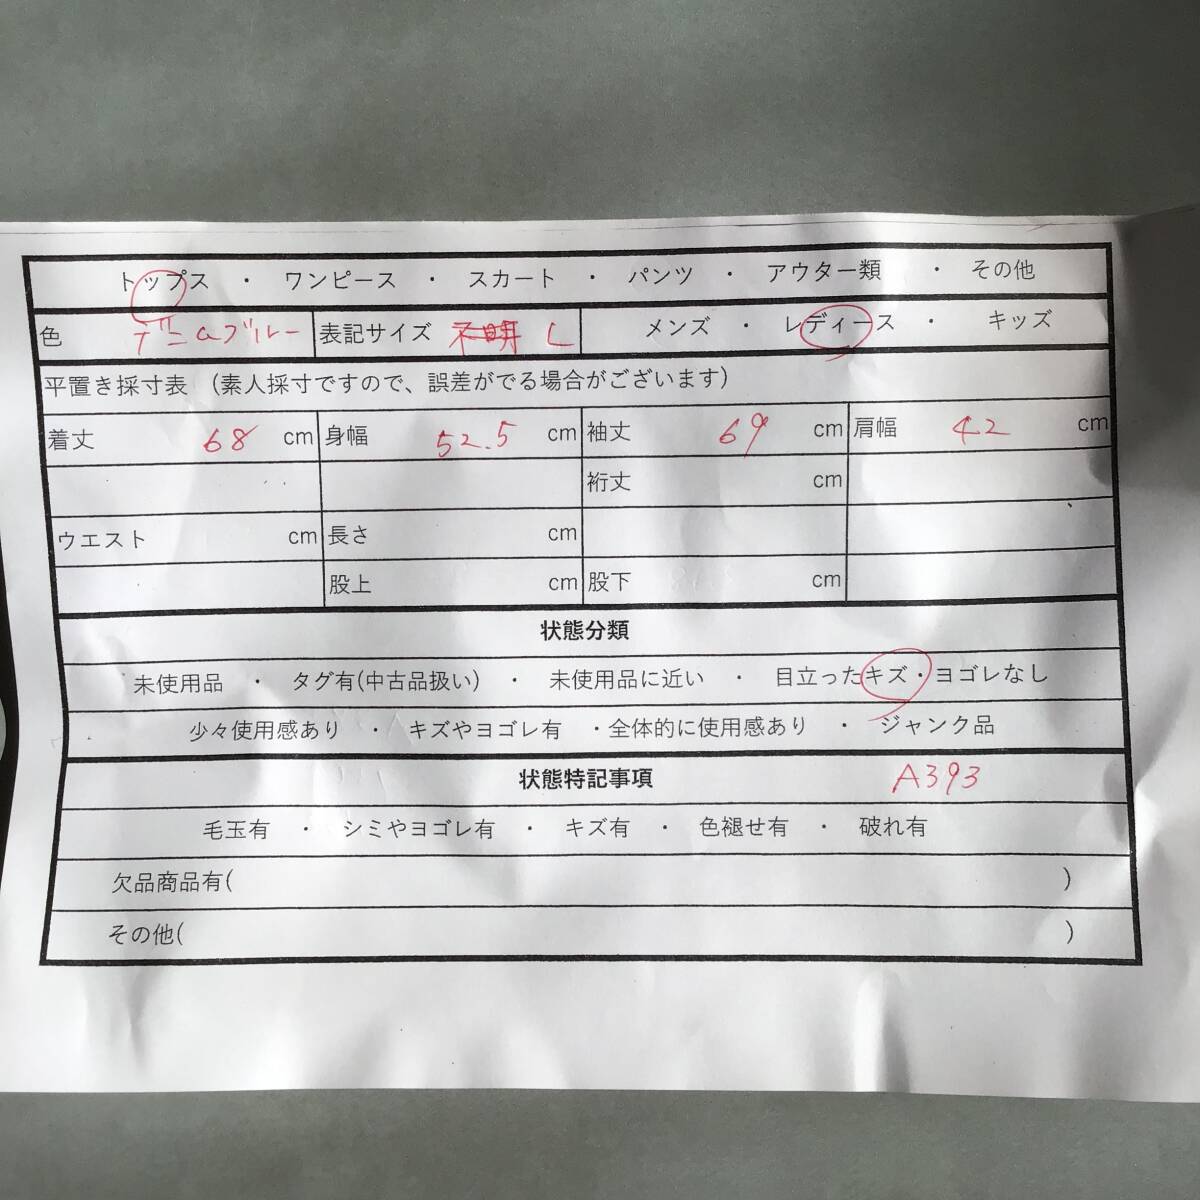 トップス ・ ワンピース ・ スカート ・ パンツ ・ アウター類 ・ その他
色 デニムブルー 表記サイズ 不明 L メンズ ・ レディース ・ キッズ
平置き採寸表 (素人採寸ですので、誤差がでる場合がございます)
着丈 68 cm 身幅 52.5 cm 袖丈 69 cm 肩幅 42 cm
裄丈 cm
ウエスト cm 長さ cm
股上 cm 股下 cm
状態分類
未使用品 ・ タグ有(中古品扱い) ・ 未使用品に近い ・ 目立ったキズ・ヨゴレなし
少々使用感あり ・ キズやヨゴレ有 ・全体的に使用感あり ・ ジャンク品
状態特記事項 A393
毛玉有 ・ シミやヨゴレ有 ・ キズ有 ・ 色褪せ有 ・ 破れ有
欠品商品有( )
その他( )